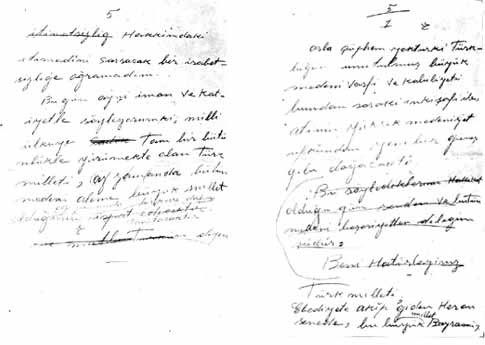 5
Hakkındaki
sarsacak bir isabet-
sizliğe oğramadım.
Bugün ayni iman ve kat-
iyetle söyleyorumki, milli
ülküye tam bir bütü
nlükle yürümekte olan türk
milleti, az zamanda, bütün
medeni büyük millet
olduğunu
5
1
asla şüphem yokturki Türk-
lüğün unutulmuş büyük
medeni vasfi ve kabiliyeti
bundan soraki inkişafı ile
atinin yüksek medeniyet
ufkundan yeni bir güneş
gibi doğacaktı
Bu söylediklerim Hakikat
olduğu gün senden ve bütün
medeni beşeriyetten dileğim
şudur:
Beni Hatırlayınız
Türk milleti,
Ebediyete akıp giden Heran
senede, bu büyük millet